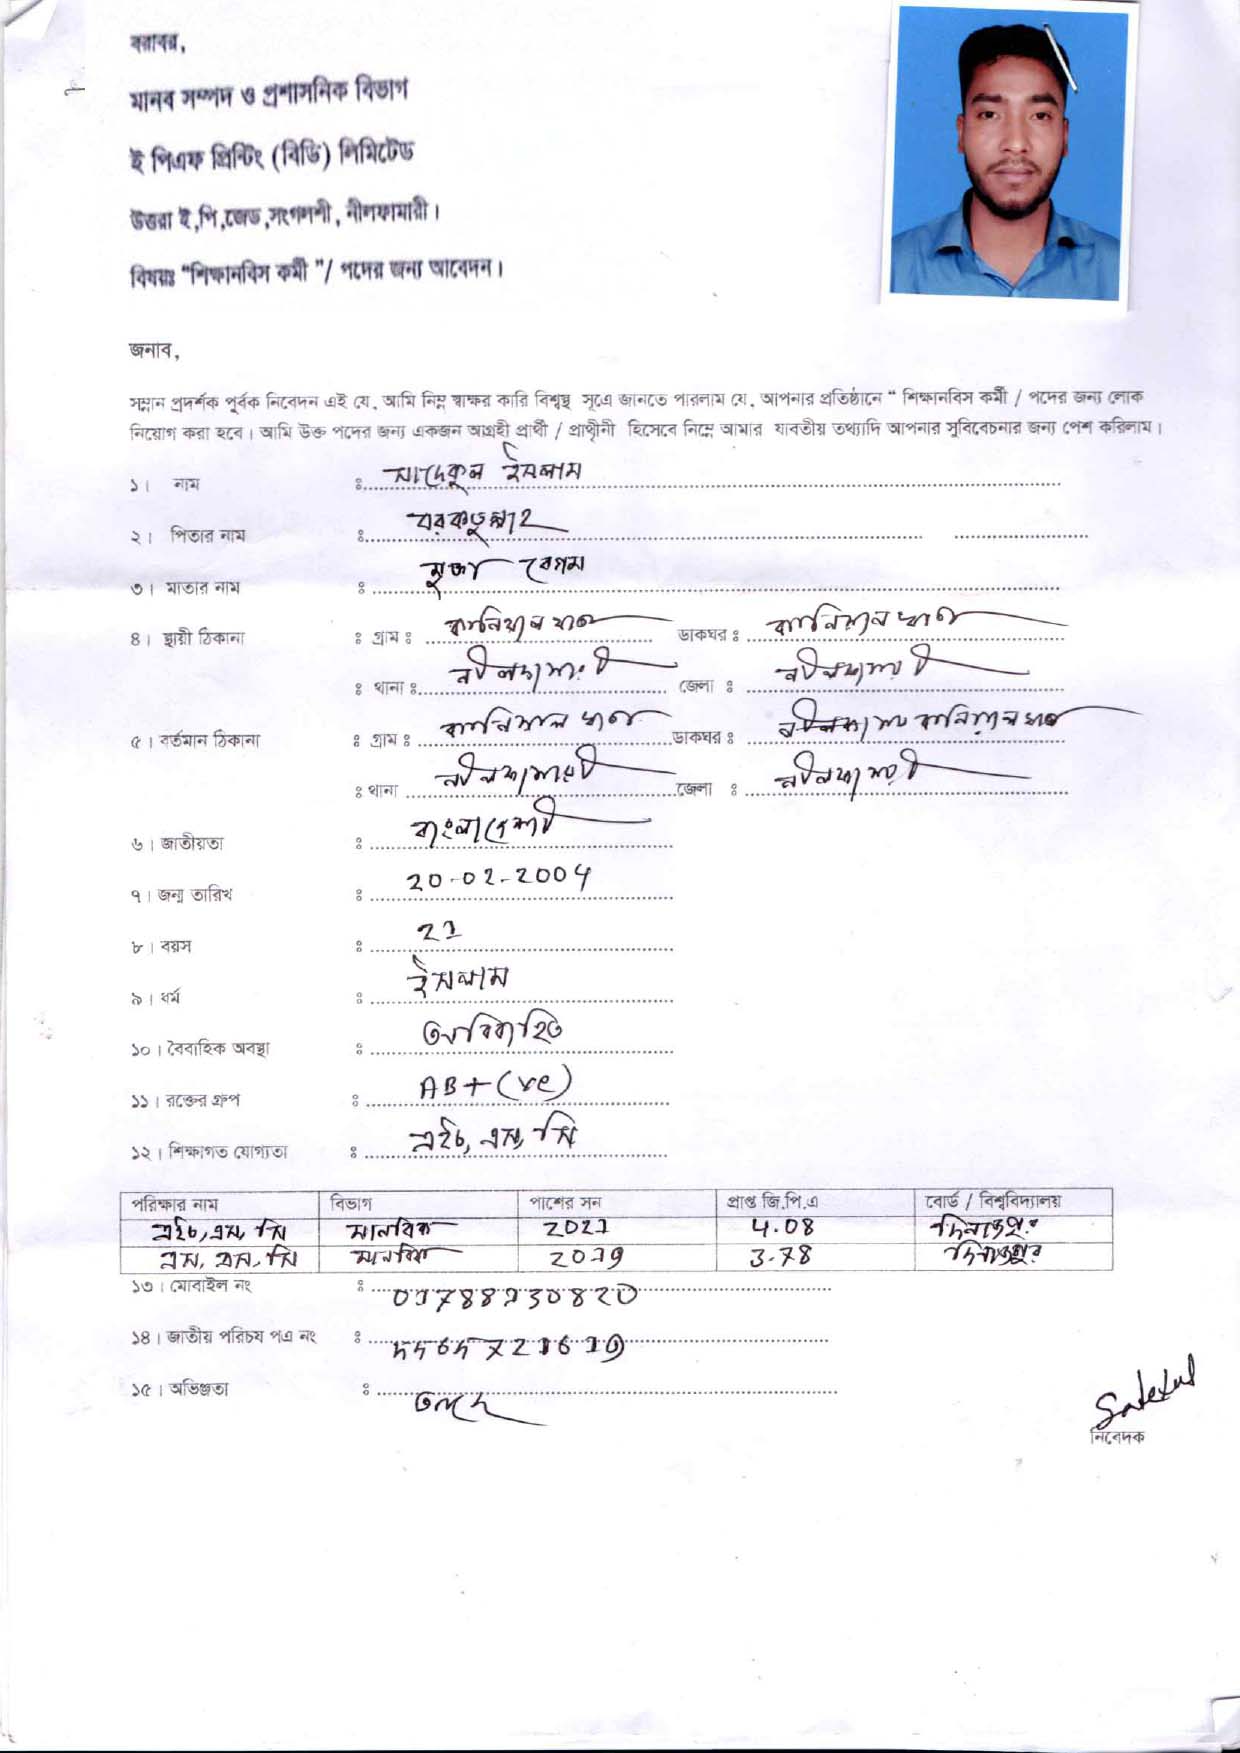 বরাবর,
মানব সম্পদ ও প্রশাসনিক বিভাগ
ই পিএফ প্রিন্টিং (বিডি) লিমিটেড
উত্তরা ই,পি,জেড,সংগলশী, নীলফামারী।
বিষয়ঃ “শিক্ষানবিস কর্মী ”/ পদের জন্য আবেদন।
জনাব,
সম্মান প্রদর্শক পূর্বক নিবেদন এই যে, আমি নিম্ন স্বাক্ষর কারি বিশ্বস্থ সূত্রে জানতে পারলাম যে, আপনার প্রতিষ্ঠানে “ শিক্ষানবিস কর্মী / পদের জন্য লোক
নিয়োগ করা হবে। আমি উক্ত পদের জন্য একজন আগ্রহী প্রার্থী / প্রার্থীনী হিসেবে নিম্নে আমার যাবতীয় তথ্যাদি আপনার সুবিবেচনার জন্য পেশ করিলাম।
১। নাম ঃ সাদেকুল ইসলাম
২। পিতার নাম ঃ বরকতুল্লাহ
৩। মাতার নাম ঃ মুক্তা বেগম
৪। স্থায়ী ঠিকানা ঃ গ্রাম ঃ কানিয়াল খাতা ডাকঘর ঃ কানিয়াল খাতা
ঃ থানা ঃ নীলফামারী জেলা ঃ নীলফামারী
৫। বর্তমান ঠিকানা ঃ গ্রাম ঃ কানিয়াল খাতা ডাকঘর ঃ কানিয়াল খাতা
ঃ থানা নীলফামারী জেলা ঃ নীলফামারী
৬। জাতীয়তা ঃ বাংলাদেশী
৭। জন্ম তারিখ ঃ 20-02-2004
৮। বয়স ঃ 21
৯। ধর্ম ঃ ইসলাম
১০। বৈবাহিক অবস্থা ঃ অবিবাহিত
১১। রক্তের গ্রুপ ঃ AB+(ve)
১২। শিক্ষাগত যোগ্যতা ঃ এইচ, এস, সি
পরিক্ষার নাম বিভাগ পাশের সন প্রাপ্ত জি.পি.এ বোর্ড / বিশ্ববিদ্যালয়
এইচ,এস, সি মানবিক 2021 4.08 দিনাজপুর
এস, এস, সি মানবিক 2019 3.78 দিনাজপুর
১৩। মোবাইল নং ঃ 01788130820
১৪। জাতীয় পরিচয় পএ নং ঃ
১৫। অভিজ্ঞতা ঃ আছে
Sadekul
নিবেদক